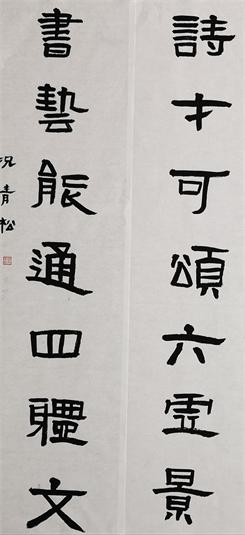 詩才可頌六虛景
書藝能通四體文
況青松